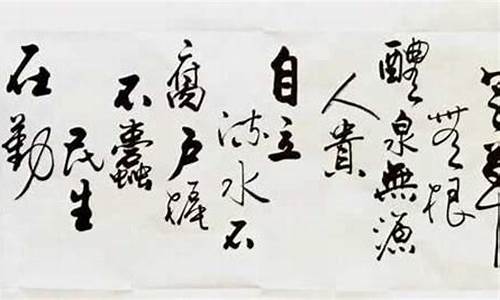 芝草
無根
醴泉無源
人貴
自立
流水不
腐户樞
不蠹
民生
在勤